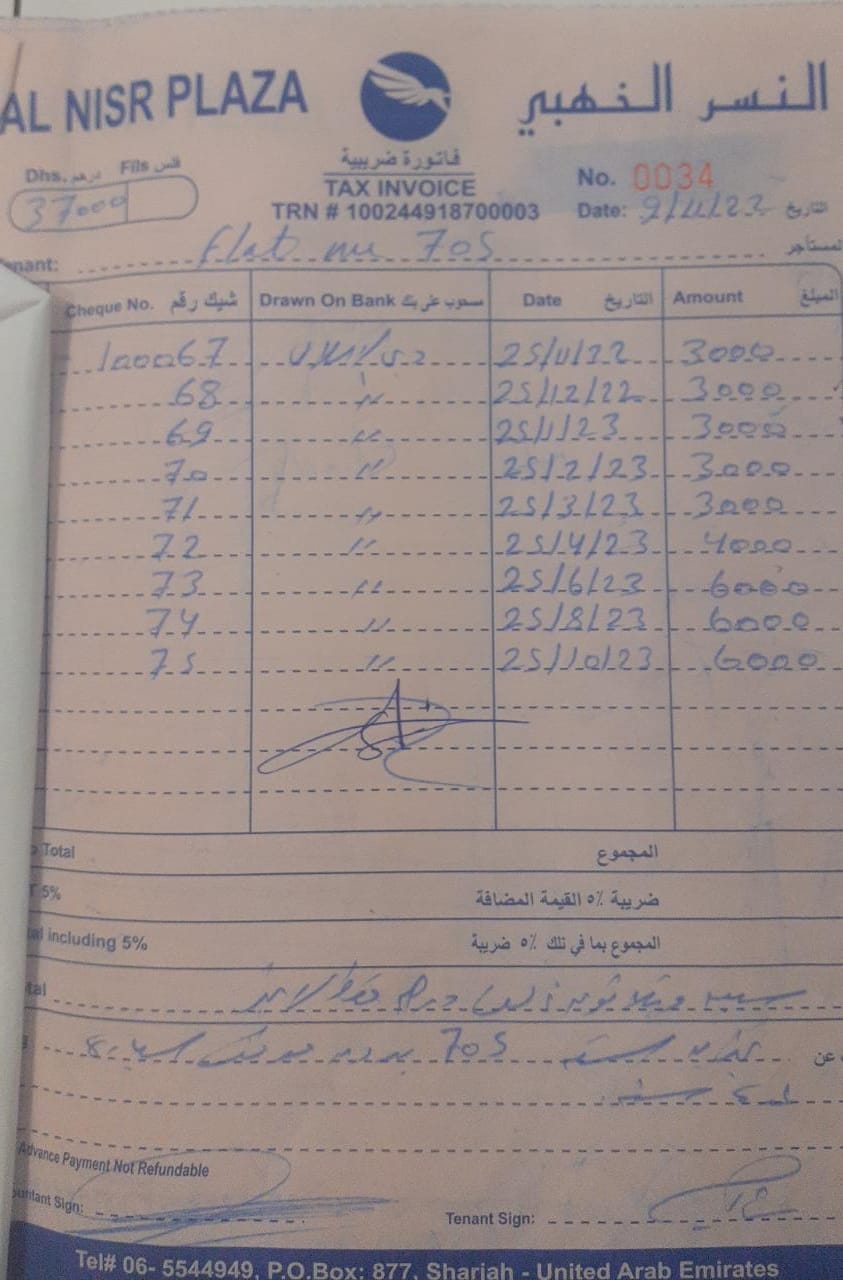 AL NISR PLAZA
النسر الذهبي
Dhs. درهم Fils فلس
37000
فاتورة ضريبية
TAX INVOICE
TRN # 100244918700003
No. 0034
Date: 9/11/22 التاريخ
Tenant: Flat no 705
Cheque No. شيك رقم Drawn On Bank مسحوب على بنك Date التاريخ Amount المبلغ
100067 25/11/22 3000
68 " 25/12/22 3000
69 " 25/1/23 3000
70 " 25/2/23 3000
71 " 25/3/23 3000
72 " 25/4/23 4000
73 " 25/6/23 6000
74 " 25/8/23 6000
75 " 25/10/23 6000
Total المجموع
5% ضريبة ٥٪ القيمة المضافة
including 5% المجموع بما في ذلك ٥٪ ضريبة
درهم فقط لا غير
705 عن
Advance Payment Not Refundable
Sign:
Tenant Sign:
Tel# 06- 5544949, P.O.Box: 877, Sharjah - United Arab Emirates